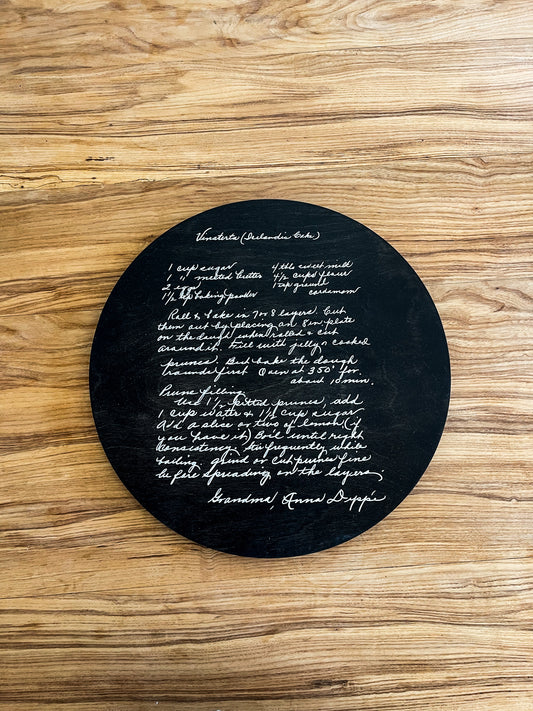 Vinaterta (Icelandic Cake)
1 cup sugar
1 " melted butter
2 eggs
1 1/2 tsp baking powder
4 tbls sweet milk
4 1/2 cups flour
1 tsp ground
cardamom
Roll & bake in 7 or 8 layers. Cut
them out by placing an 8 in. plate
on the dough when rolled & cut
around it. Fill with jelly or cooked
prunes. But bake the dough
rounds first. Oven at 350° for
about 10 min.
Prune filling
Use 1 1/2 pitted prunes, add
1 cup water & 1 1/2 cup sugar
Add a slice or two of lemon (if
you have it) Boil until right
consistency. Stir frequently while
boiling. grind or cut prunes fine
before spreading on the layers.
Grandma, Anna